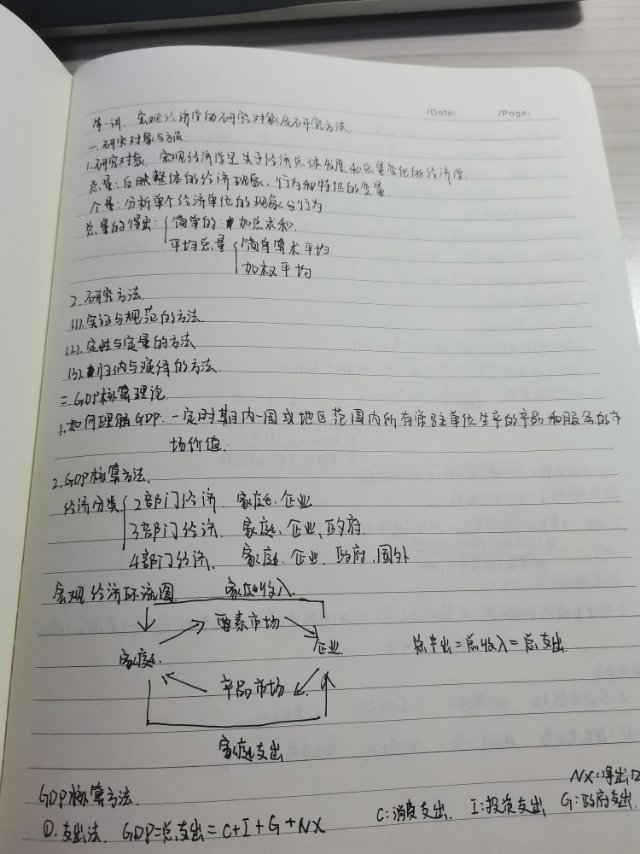 /Date: /Page:
第一讲、宏观经济学的研究对象及研究方法
一.研究对象与方法
1.研究对象、宏观经济学是关于经济总体发展和总量变化的经济学.
总量:反映整体的经济现象、行为和特征的变量
个量:分析单个经济单位的现象与行为
总量的得出: 简单的:加总求和.
平均总量 简单算术平均
加权平均
2.研究方法.
(1).实证与规范的方法
(2).定性与定量的方法
(3).归纳与演绎的方法
二.GDP核算理论
1.如何理解GDP. 一定时期内一国或地区范围内所有常住单位生产的产品和服务的市
场价值.
2.GDP核算方法.
经济分类 2部门经济、家庭、企业
3部门经济、家庭、企业、政府
4部门经济、家庭、企业、政府、国外
宏观经济环流图 家庭收入
要素市场
家庭 企业 总产出=总收入=总支出.
产品市场
家庭支出
GDP核算方法. NX:净出口
①.支出法、GDP=总支出=C+I+G+NX C:消费支出、I:投资支出 G:政府支出.